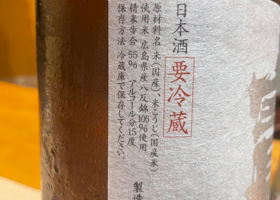 日本酒
要冷蔵
原材料名 米(国産)、米こうじ(国産米)
使用米 広島県産八反錦100%使用
精米歩合 55% アルコール分15度
保存方法 冷蔵庫で保存してください。
製造